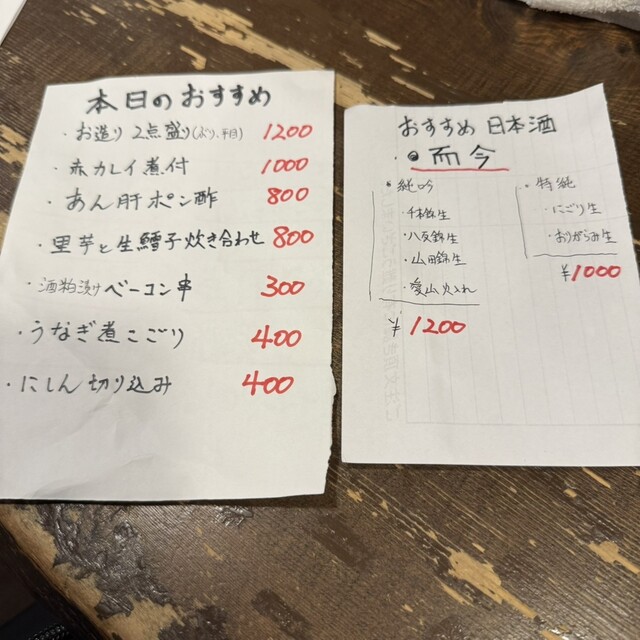 本日のおすすめ
・お造り 2点盛り(ぶり、平目) 1200
・赤カレイ煮付 1000
・あん肝ポン酢 800
・里芋と生鱈子炊き合わせ 800
・酒粕漬けベーコン串 300
・うなぎ煮こごり 400
・にしん切り込み 400
おすすめ 日本酒
・而今
・純吟
・千本錦生
・八反錦生
・山田錦生
・愛山火入れ
¥1200
・特純
・にごり生
・おりがらみ生
¥1000